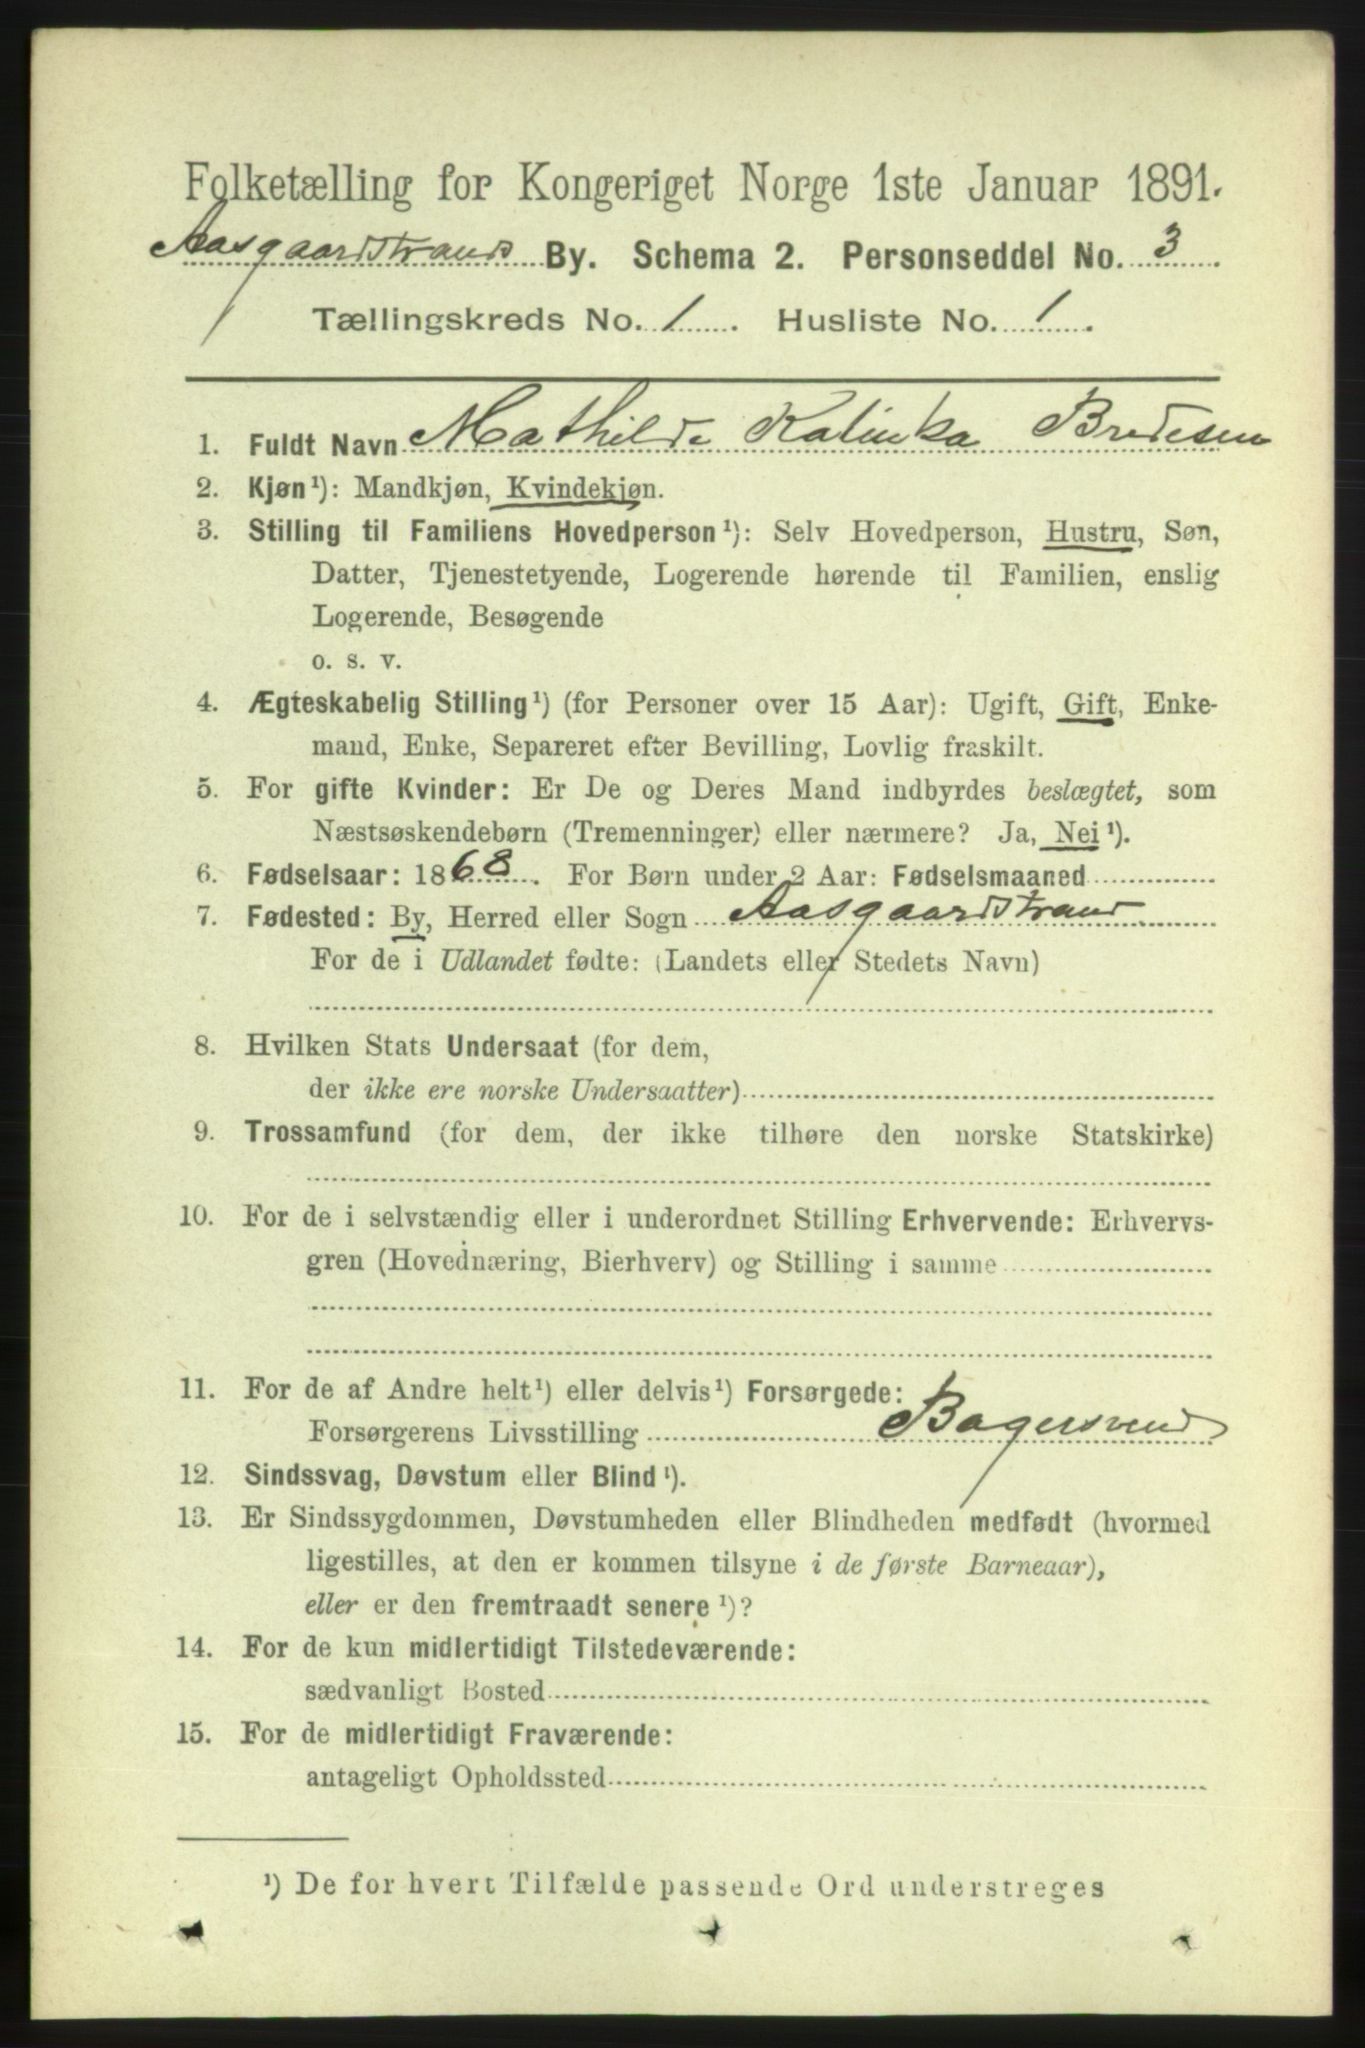 Folketælling for Kongeriget Norge 1ste Januar 1891.
Aasgaardstrands By. Schema 2. Personseddel No. 3
Tællingskreds No. 1. Husliste No. 1.
1. Fuldt Navn Mathilde Kalinka Bredesen
2. Kjøn¹): Mandkjøn, Kvindekjøn.
3. Stilling til Familiens Hovedperson¹): Selv Hovedperson, Hustru, Søn,
Datter, Tjenestetyende, Logerende hørende til Familien, enslig
Logerende, Besøgende
o. s. v.
4. Ægteskabelig Stilling¹) (for Personer over 15 Aar): Ugift, Gift, Enke-
mand, Enke, Separeret efter Bevilling, Lovlig fraskilt.
5. For gifte Kvinder: Er De og Deres Mand indbyrdes beslægtet, som
Næstsøskendebørn (Tremenninger) eller nærmere? Ja, Nei¹).
6. Fødselsaar: 1868. For Børn under 2 Aar: Fødselsmaaned
7. Fødested: By, Herred eller Sogn Aasgaardstrand
For de i Udlandet fødte: (Landets eller Stedets Navn)
8. Hvilken Stats Undersaat (for dem,
der ikke ere norske Undersaatter)
9. Trossamfund (for dem, der ikke tilhøre den norske Statskirke)
10. For de i selvstændig eller i underordnet Stilling Erhvervende: Erhvervs-
gren (Hovednæring, Bierhverv) og Stilling i samme
11. For de af Andre helt¹) eller delvis¹) Forsørgede:
Forsørgerens Livsstilling Bagersvend
12. Sindssvag, Døvstum eller Blind¹).
13. Er Sindssygdommen, Døvstumheden eller Blindheden medfødt (hvormed
ligestilles, at den er kommen tilsyne i de første Barneaar),
eller er den fremtraadt senere¹)?
14. For de kun midlertidigt Tilstedeværende:
sædvanligt Bosted
15. For de midlertidigt Fraværende:
antageligt Opholdssted
¹) De for hvert Tilfælde passende Ord understreges